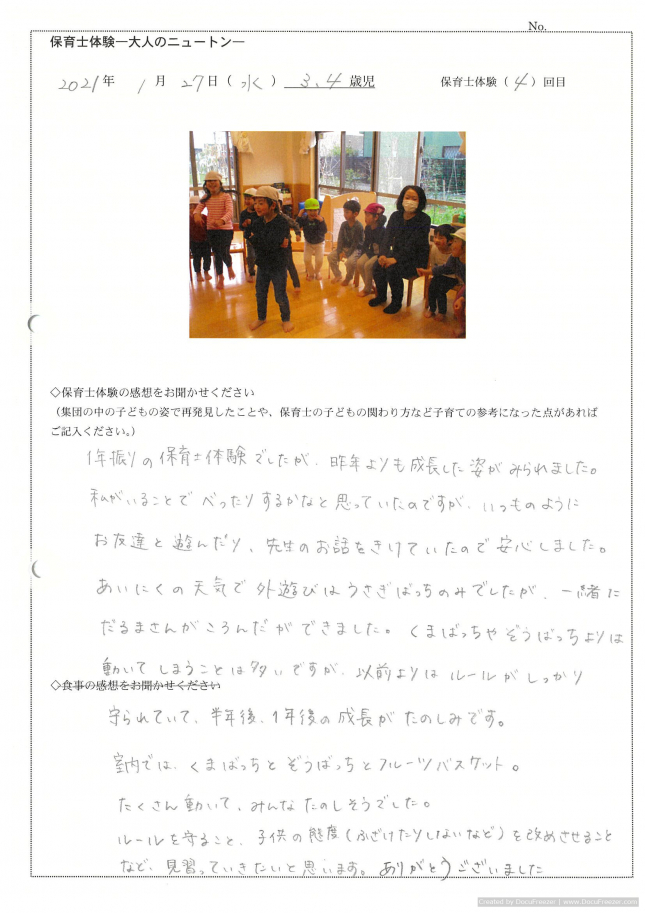 No.
保育士体験―大人のニュートン―
2021年 1月 27日（水） 3、4歳児 保育士体験（4）回目
◇保育士体験の感想をお聞かせください
（集団の中の子どもの姿で再発見したことや、保育士の子どもの関わり方など子育ての参考になった点があれば
ご記入ください。）
1年振りの保育士体験でしたが、昨年よりも成長した姿がみられました。
私がいることでべったりするかなと思っていたのですが、いつものように
お友達と遊んだり、先生のお話をきけていたので安心しました。
あいにくの天気で外遊びはうさぎばっちのみでしたが、一緒に
だるまさんがころんだができました。くまばっちやぞうばっちよりは
動いてしまうことは多いですが、以前よりはルールがしっかり
◇食事の感想をお聞かせください
守られていて、半年後、1年後の成長がたのしみです。
室内では、くまばっちとぞうばっちとフルーツバスケット。
たくさん動いて、みんなたのしそうでした。
ルールを守ること、子供の態度（ふざけたりしないなど）を改めさせること
など、見習っていきたいと思います。ありがとうございました
Created by DocuFreezer | www.DocuFreezer.com